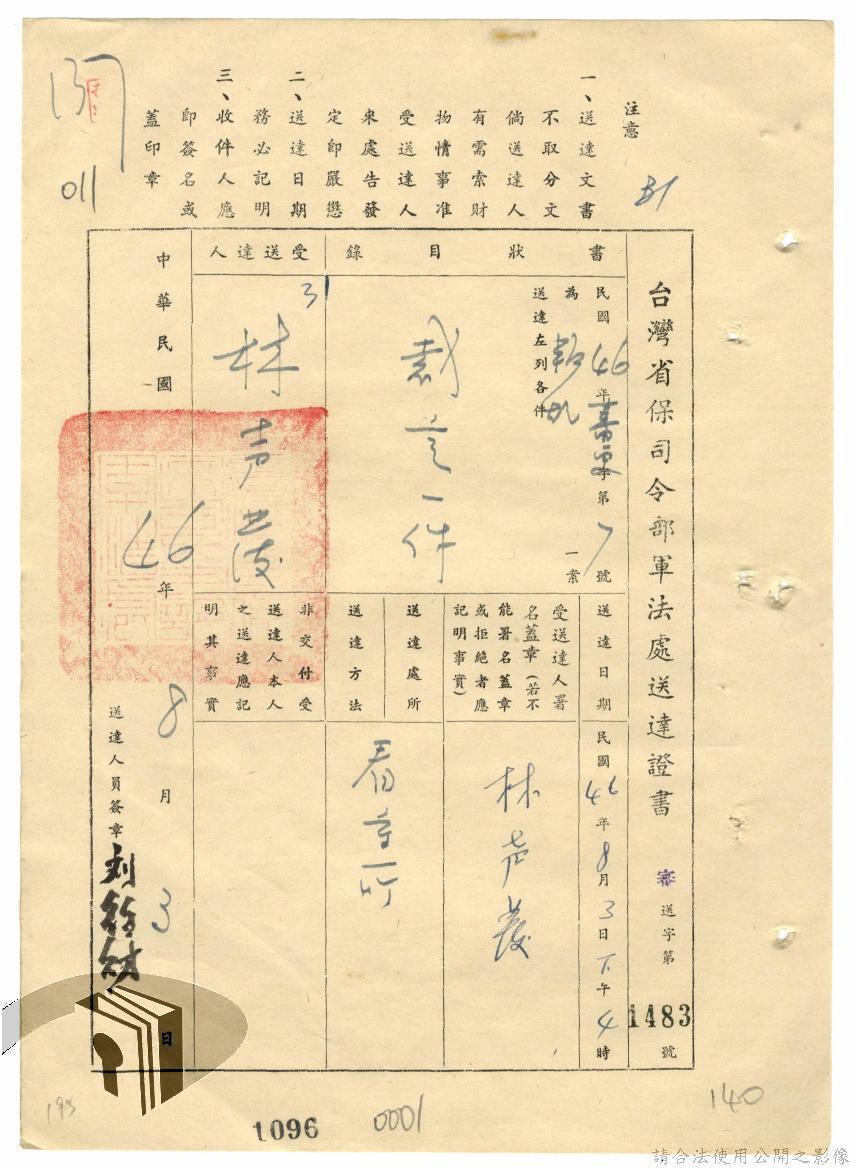 注意
一、送達文書
不取分文
倘送達人
有需索財
物情事准
受送達人
來處告發
定即嚴懲
二、送達日期
務必記明
三、收件人應
即簽名或
蓋印章
31
011
台灣省保司令部軍法處送達證書 審送字第1483號
書狀目錄
民國46年審更字第7號
為叛亂一案
送達左列各件
裁定一件
受送達人
31
林声發
送達日期
民國46年8月3日下午4時
受送達人署
名蓋章(若不
能署名蓋章
或拒絕者應
記明事實)
林声發
送達處所
看守所
送達方法
非交付受
送達人本人
之送達應記
明其事實
中華民國46年8月3日
送達人員簽章
1096
0001
140
193
請合法使用公開之影像